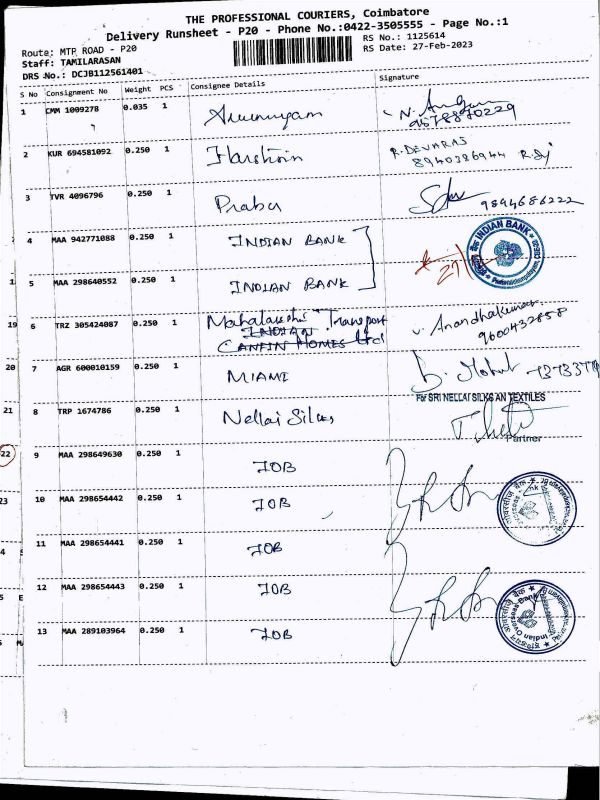 THE PROFESSIONAL COURIERS, Coimbatore
Delivery Runsheet - P20 - Phone No.:0422-3505555 - Page No.:1
Route: MTP ROAD - P20
RS No.: 1125614
Staff: TAMILARASAN
RS Date: 27-Feb-2023
DRS No.: DCJB112561401
S No Consignment No Weight PCS Consignee Details Signature
1 CMM 1009278 0.035 1
2 KUR 694581092 0.250 1 R. DEVARAS
8940386944
3 TVR 4096796 0.250 1 Prabu 9894686222
4 MAA 942771088 0.250 1 INDIAN BANK
INDIAN BANK
5 MAA 298640552 0.250 1 INDIAN BANK
19 6 TRZ 305424087 0.250 1 Mahalakshmi Transport V. Anandhakumar
INDIAN
CANFIN HOMES Ltd
20 7 AGR 600010159 0.250 1 MIAMI
For SRI NELLAI SILKS AN TEXTILES
21 8 TRP 1674786 0.250 1 Nellai Silks
Partner
22 9 MAA 298649630 0.250 1 IOB
23 10 MAA 298654442 0.250 1 IOB
11 MAA 298654441 0.250 1 IOB
12 MAA 298654443 0.250 1 IOB
13 MAA 289103964 0.250 1 IOB
Indian Overseas Bank